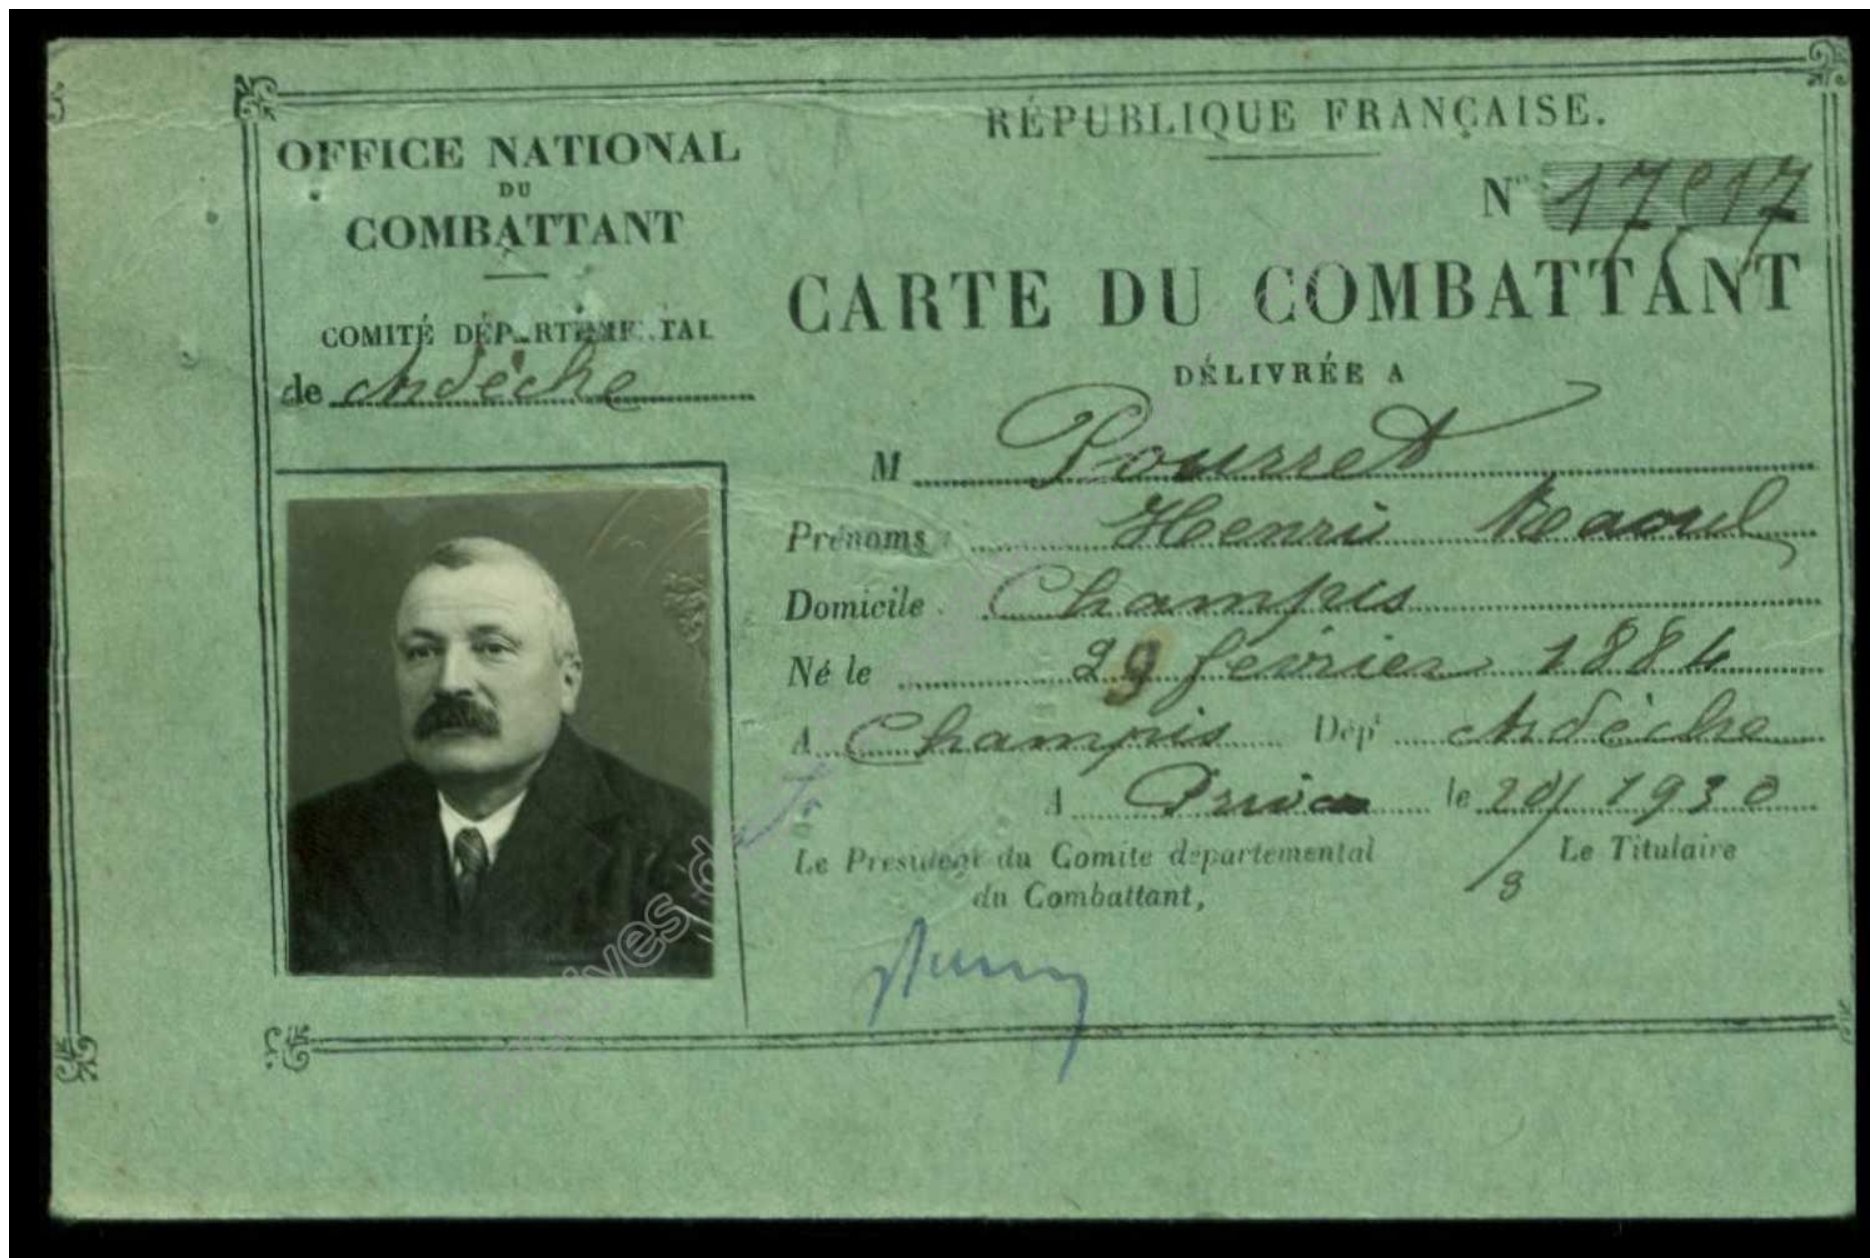 OFFICE NATIONAL
DU
COMBATTANT
COMITÉ DÉPARTEMENTAL
de Ardèche
RÉPUBLIQUE FRANÇAISE.
N° 17517
CARTE DU COMBATTANT
DÉLIVRÉE A
M Pourret
Prénoms Henri Raoul
Domicile Champis
Né le 29 février 1884
A Champis Dépt Ardèche
A Privas le 20/3 1930
Le Président du Comité départemental
du Combattant,
Le Titulaire